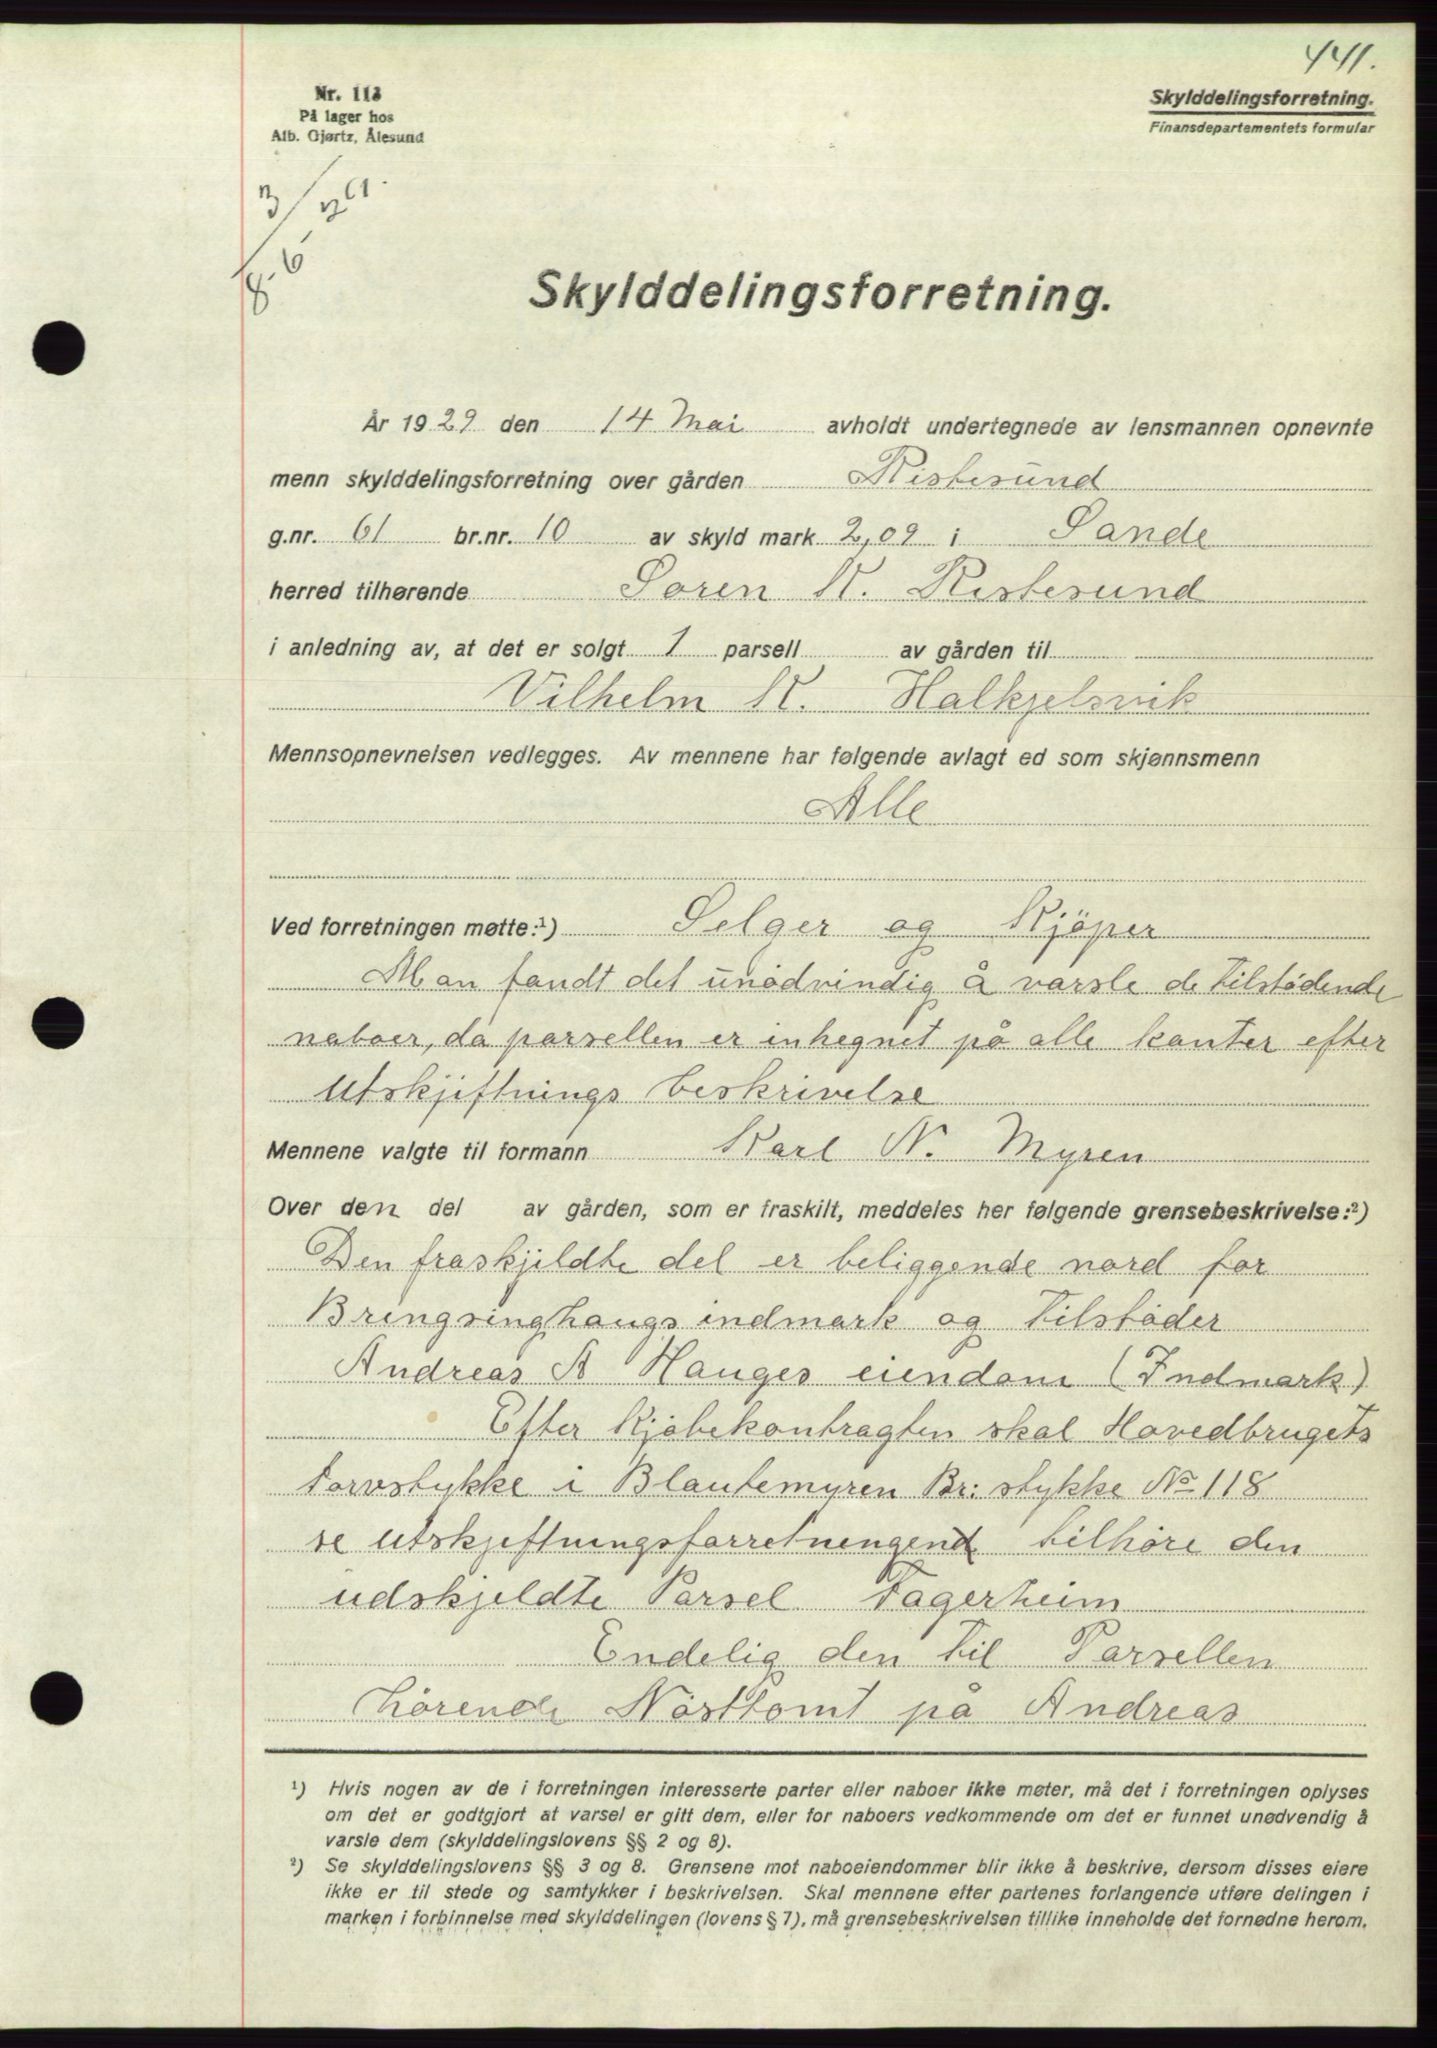 441.
Nr. 113
På lager hos
Alb. Gjørtz, Ålesund
Skylddelingsforretning.
Finansdepartementets formular
3/8-6
Skylddelingsforretning.
År 1929 den 14 Mai avholdt undertegnede av lensmannen opnevnte
menn skylddelingsforretning over gården Ristesund
g.nr. 61 br.nr. 10 av skyld mark 2,09 i Sande
herred tilhørende Søren K. Ristesund
i anledning av, at det er solgt 1 parsell av gården til
Vilhelm K. Halkjelsvik
Mennsopnevnelsen vedlegges. Av mennene har følgende avlagt ed som skjønnsmenn
Alle
Ved forretningen møtte:¹) Selger og Kjöper
Man fandt det unödvindig å varsle de tilstödende
naboer, da parsellen er inhegnet på alle kanter efter
utskjiftnings beskrivelse
Mennene valgte til formann Karl N. Myren
Over den del av gården, som er fraskilt, meddeles her følgende grensebeskrivelse:²)
Den fraskjildte del er beliggende nord for
Bringsinghaugs indmark og tilstöder
Andreas A Hauges eiendom (Indmark)
Efter Kjöbekontragten skal Hovedbrugets
torvstykke i Blautemyren Br: stykke No 118
se utskjeftningsforretningen tilhöre den
udskjeldte Parsel Fagerheim
Endelig den til Parsellen
hörende Nösttomt på Andreas
¹) Hvis nogen av de i forretningen interesserte parter eller naboer ikke møter, må det i forretningen oplyses
om det er godtgjort at varsel er gitt dem, eller for naboers vedkommende om det er funnet unødvendig å
varsle dem (skylddelingslovens §§ 2 og 8).
²) Se skylddelingslovens §§ 3 og 8. Grensene mot naboeiendommer blir ikke å beskrive, dersom disses eiere
ikke er til stede og samtykker i beskrivelsen. Skal mennene efter partenes forlangende utføre delingen i
marken i forbinnelse med skylddelingen (lovens § 7), må grensebeskrivelsen tillike inneholde det fornødne herom.